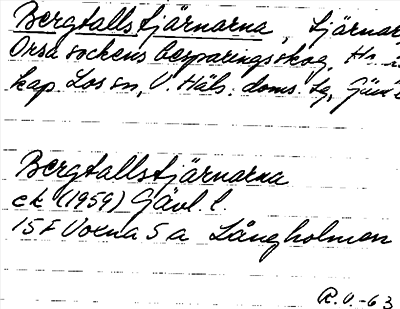 Bergtallstjärnarna, tjärnar
Orsa sockens besparingsskog, Hs i
kap. Los sn, V. Häls. doms. tg,
Bergtallstjärnarna
ek (1959) Gävl. l.
15 F Voxna 5 a Långholmen
R.V.-63